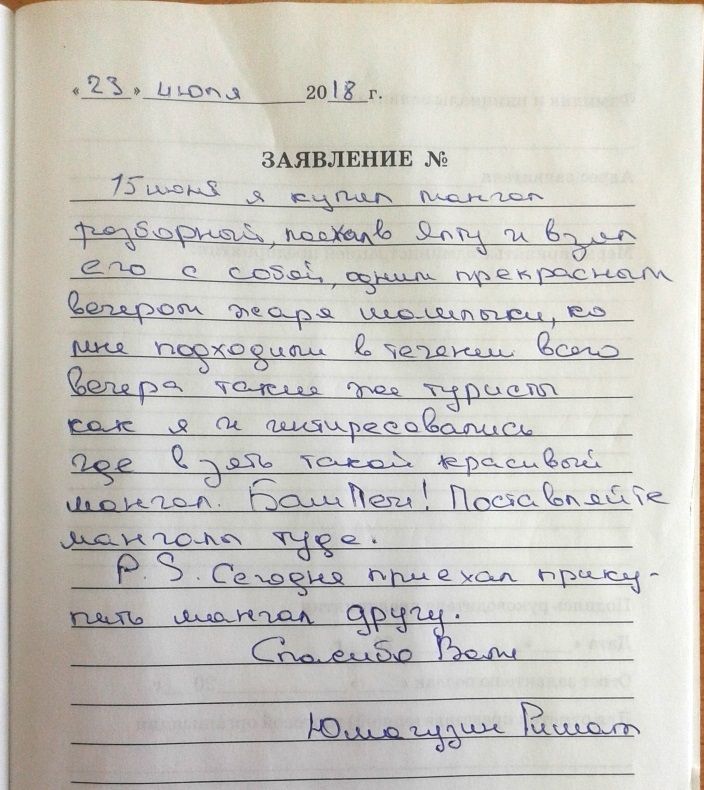 «23» июля 2018 г.
ЗАЯВЛЕНИЕ №
15 июня я купил мангал
разборный, поехал в Ялту и взял
его с собой, одним прекрасным
вечером жаря шашлыки, ко
мне подходили в течении всего
вечера такие же туристы
как я и интиресовались
где взять такой красивый
мангал. БашПечи! Поставляйте
мангалы туда.
P.S. Сегодня приехал прику-
пить мангал другу.
Спасибо Вам
Юмагузин Ришат